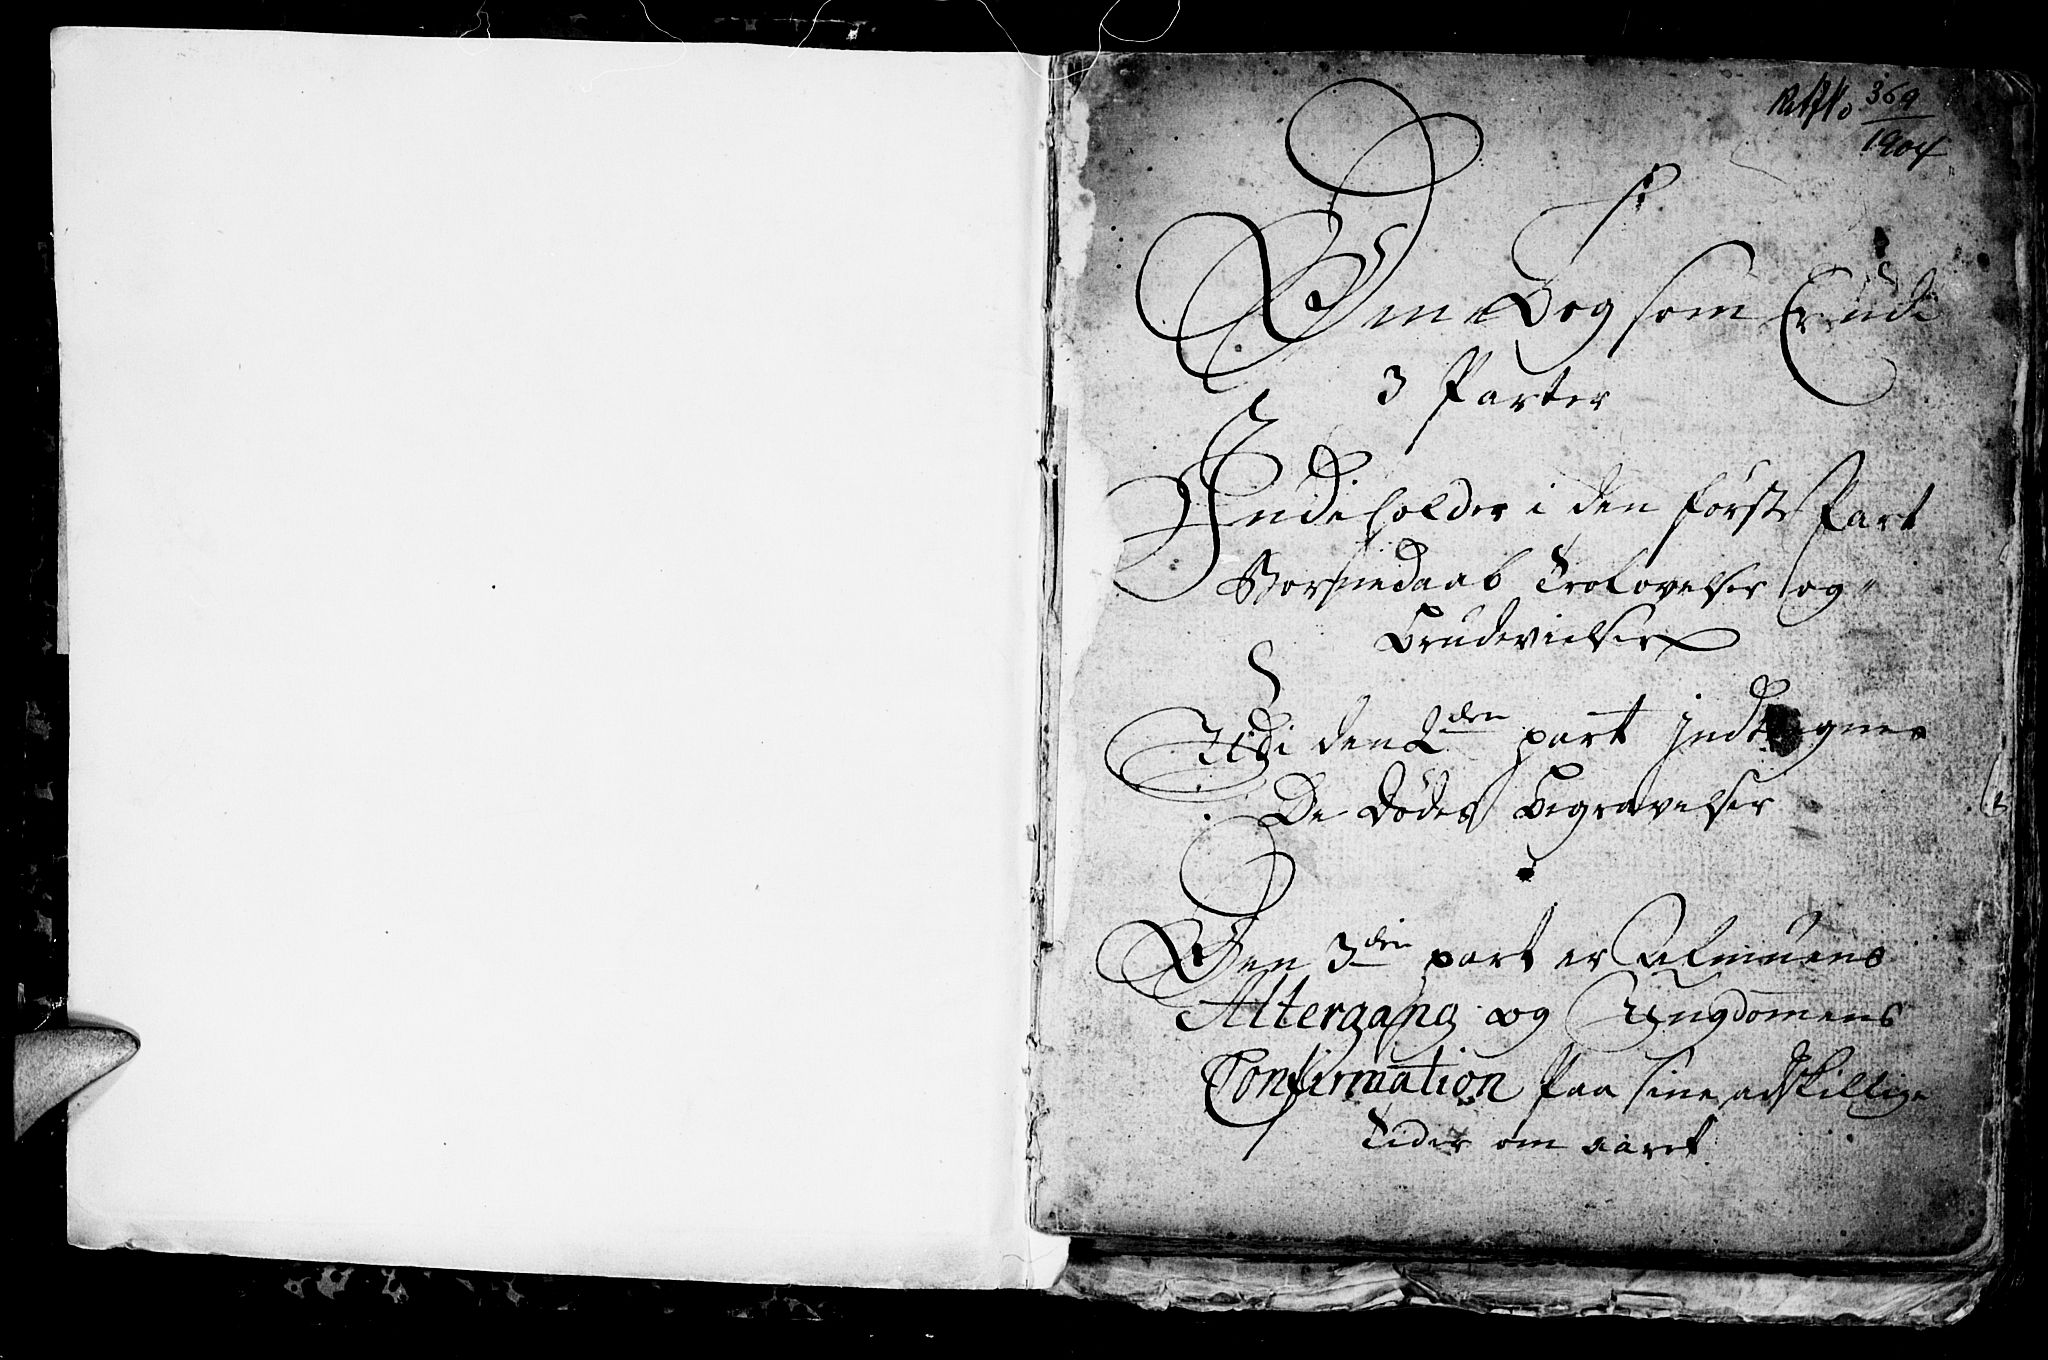 369
1904
Den Bog som Er udi
3 Parter
Indeholder i den første Part
Børnedaab Trolovelser og
Brudevielser
Udi den 2den part Indtegnes
De Dødes Begravelser
Den 3den part er Almuens
Altergang og Ungdommens
Confirmation paa sine adskillige
Tider om aaret